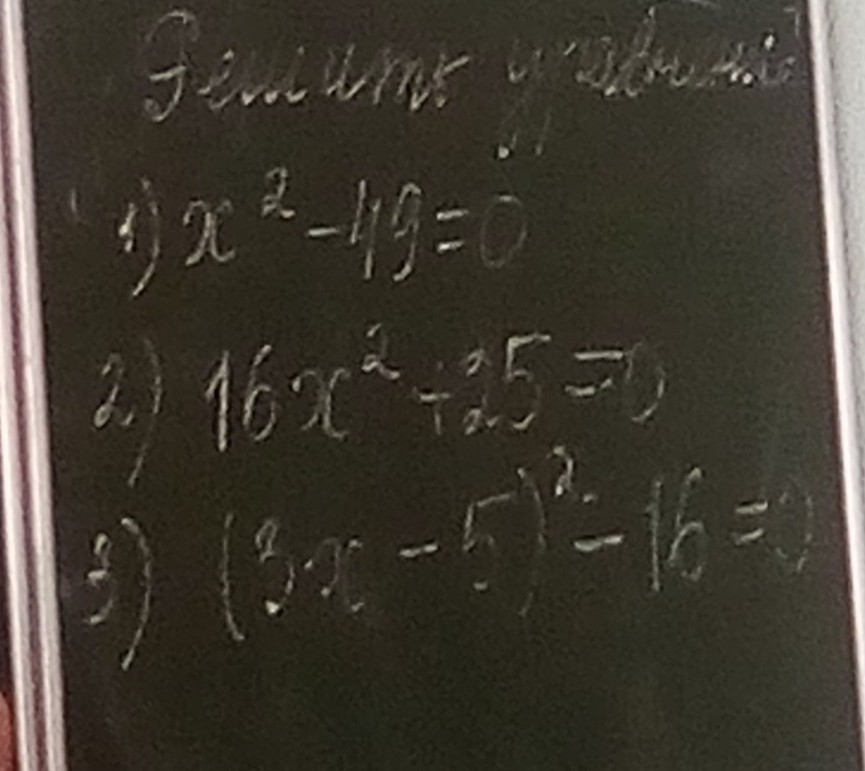 Решить уравнени
1) x² - 49 = 0
2) 16x² + 25 = 0
3) (3x - 5)² - 16 = 0